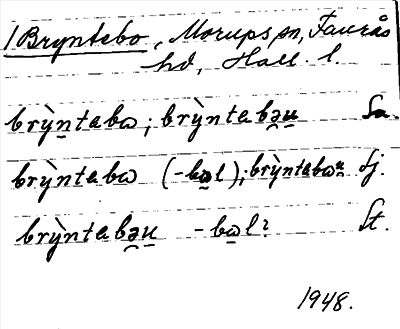 1 Bryntebo, Morups sn, Faurås
hd, Hall. l.
brỳntabω; brỳntabəu Sa.
brỳntabω (-bωl); brỳntabωu Sj.
brỳntabəu -bωl? St.
1948.